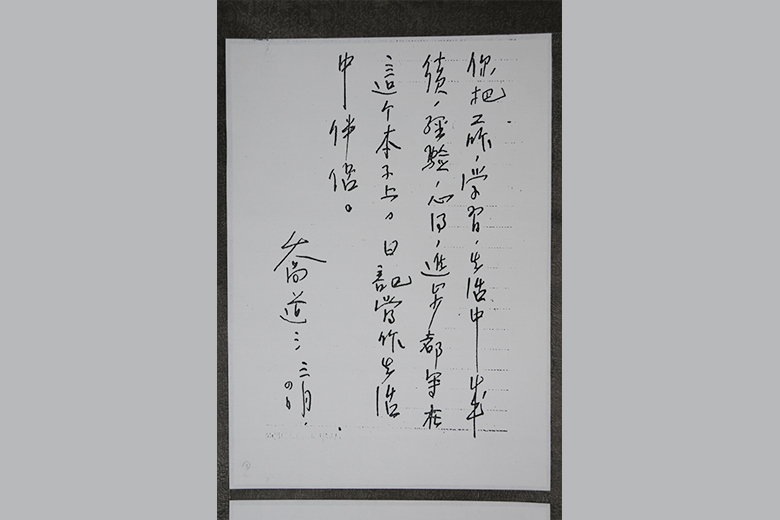 你把工作、學習、生活中成
績、經驗、心得、進步都寫在
這个本子上，日記當作生活
中伴侶。
喬道三 三月